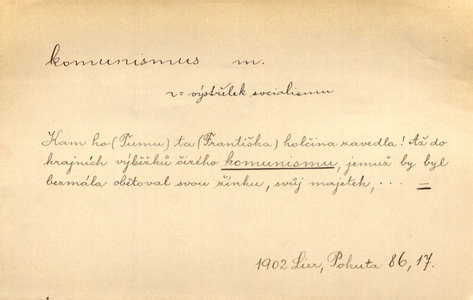 komunismus m.
v= výstřelek socialismu
Kam ho (Tumu) ta (Františka) holčina zavedla! Až do
krajních výběžků čirého komunismu, jemuž by byl
bezmála obětoval svou žínku, svůj majetek, ... =
1902 Lier, Pokuta 86, 17.